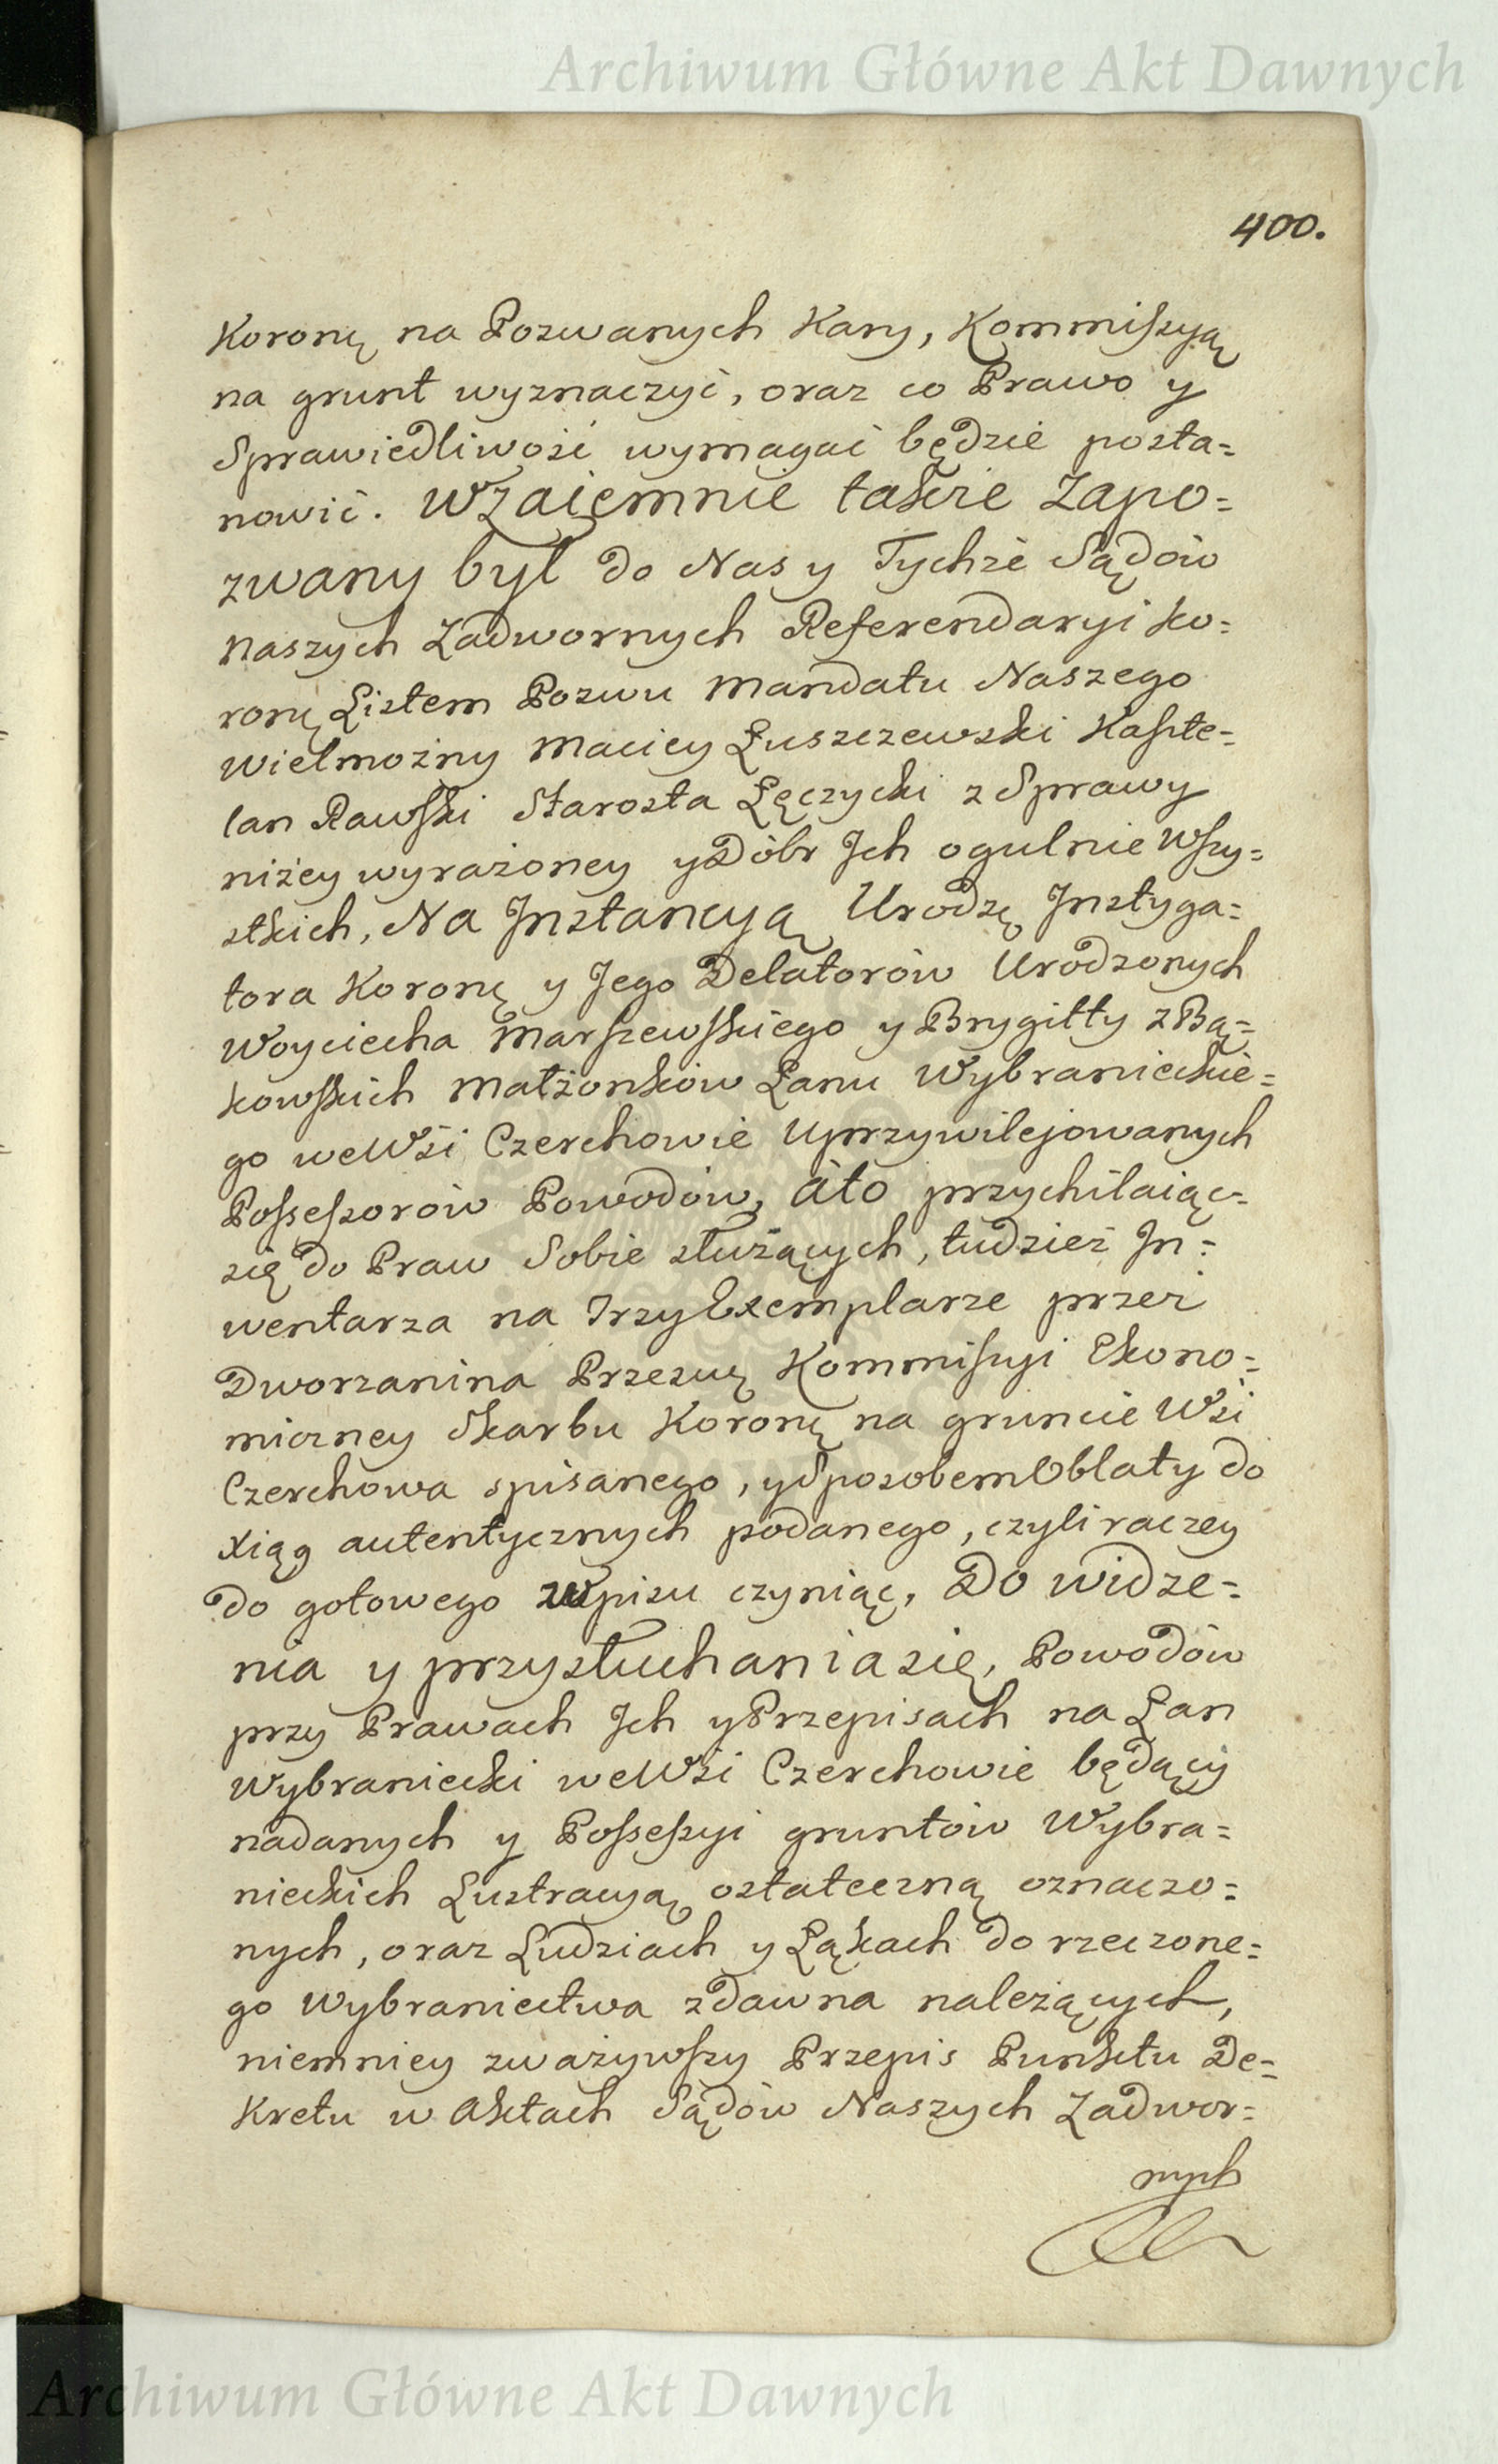 Archiwum Główne Akt Dawnych
400.
Koronę na Pozwanych Kary, Kommiszyą
na grunt wyznaczyć, oraz co Prawo y
Sprawiedliwość wymagać będzie posta=
nowić. Wzaiemnie także Zapo=
zwany był do Nas y Tychże Sądów
Naszych Zadwornych Referendaryi Ko=
ronę Listem Pozwu Mandatu Naszego
Wielmożny Maciey Łuszczewski Kaszte=
lan Rawski Starosta Łęczycki z Sprawy
niżey wyrażoney y Dóbr Jch ogulnie Wszy=
stkich, Na Jnstancyą Urodzę Jnstyga=
tora Koronę y Jego Delatorów Urodzonych
Woyciecha Marszewskiego y Brygitty z Bą=
kowskich Małżonków Łanu Wybranieckie=
go we Wsi Czerchowie Uprzywilejowanych
Possessorów Powodów, ato przychilaiąc=
się do Praw Sobie służących, tudzież Jn=
wentarza na Trzy Exemplarze przez
Dworzanina Przezwę Kommissyi Ekono=
miczney Skarbu Koronę na gruncie Wsi
Czerchowa spisanego, y Sposobem Oblaty do
Xiąg autentycznych podanego, czyli raczey
do gotowego Wpisu czyniąc, Do widze=
nia y przysłuchania się, Powodów
przy Prawach Jch y Przepisach na Łan
Wybraniecki we Wsi Czerchowie będący
nadanych y Possessyi gruntów Wybra=
nieckich Lustracyą ostateczną oznaczo=
nych, oraz Ludziach y Łąkach do rzeczone=
go Wybraniectwa zdawna należących,
niemniey zważywszy Przepis Punktu De=
kretu w Aktach Sądów Naszych Zadwor=
nych
Archiwum Główne Akt Dawnych